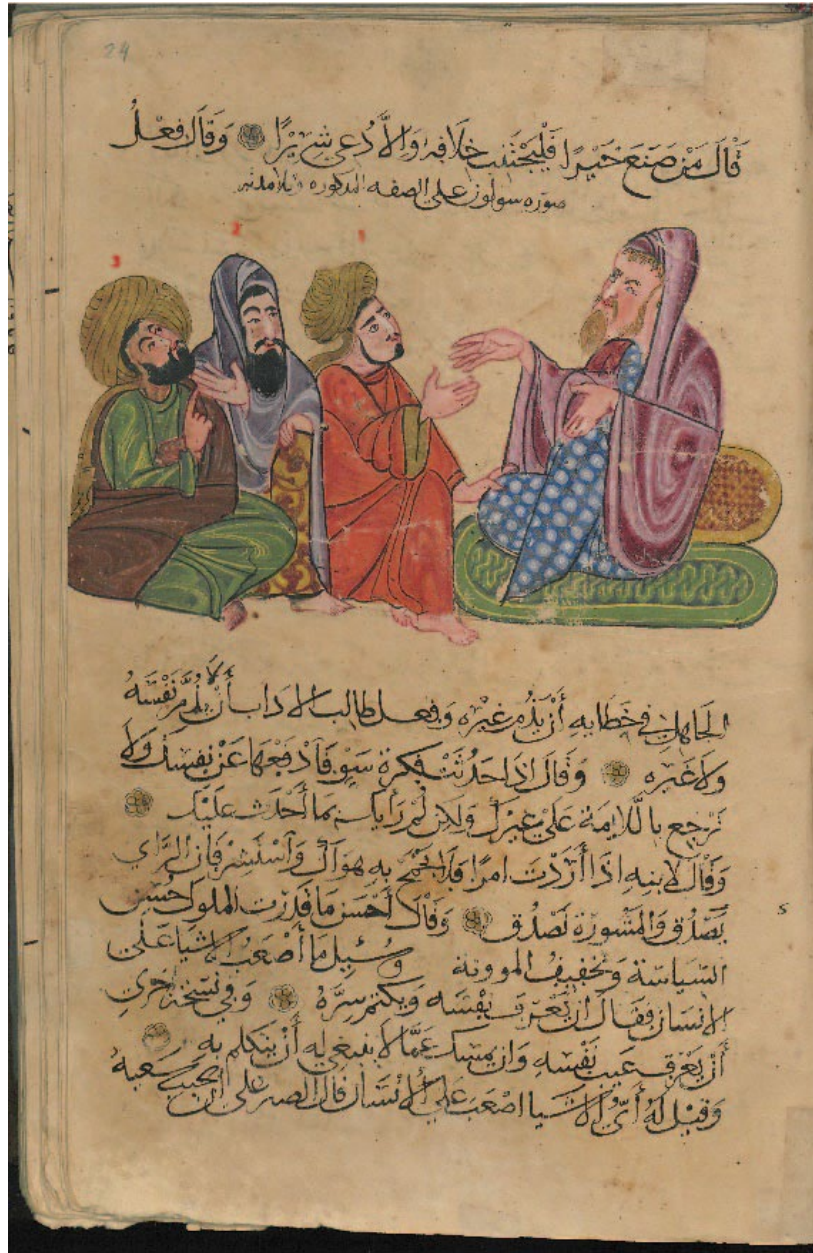 24
قَالَ مَنْ صَنَعَ خَيْرًا فَلْيَجْتَنِبْ خِلَافَهُ وَاِلَّا دُعِيَ شِرِّيْرًا وَقَالَ فِعْلُ
صوره سولون على الصفه المذكوره وتلامذته
3 2 1
الجَاهِلِ في خَطَايهِ أَنْ يَذُمَّ غيْرَه وَفعل طالب الادَاب أَنْ لَا يَذُمَّ نَفْسَهُ
ولا غَيْره وَقَالَ اذَا حَدَثَتْ فِكرة سَوٍ فَادْفَعْهَا عَنْ نفسك وَلَا
تَرْجِع باللَّايمَة عَلَى غيرك وَلكن لُمْ رَأيك بمَا أَحْدَث عليْك
وَقَالَ لابنِهِ اذَا أَرَدْتَ امرًا فَلَا بهِ هوَاكَ وَاسْتَشِرْ فَان الرَّاي
يَصْدُق وَالمَشورَة تَصْدُق وَقَالَ أَحْسَن مَا الملوك حُسْن
السّيَاسَة وَتخفيفُ الموونة وَسُئِلَ مَا أَصْعَبُ الاشيَا عَلَى
الانسَان فقَال ان يَعْرف نَفْسَه وَيكتم سِرَّهُ وَفي نسْخَة اخرى
أَنْ يَعْرف عيبَ نَفْسِهِ وَان يمسك عَمَّا لَا ينبغي لهِ أَنْ يتكلم بهِ
وَقيْل لَهُ أَيُّ الاشيَا اصْعَبَ عَلَى الانْسَان قَالَ الصبر على
s